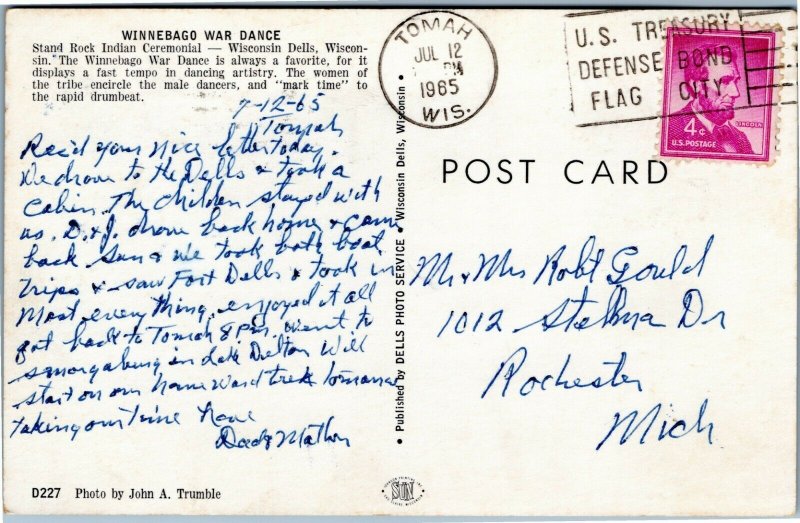 WINNEBAGO WAR DANCE
Stand Rock Indian Ceremonial — Wisconsin Dells, Wiscon-
sin. The Winnebago War Dance is always a favorite, for it
displays a fast tempo in dancing artistry. The women of
the tribe encircle the male dancers, and "mark time" to
the rapid drumbeat.
7-12-65
Tomah
Rec'd your nice letter today.
We drove to the Dells & took a
Cabin. The Children stayed with
us. D. & J. drove back home & came
back Sun & we took both boat
trips & saw Fort Dells & took in
most everything, enjoyed it all
got back to Tomah 8 PM. went to
smorgasburg in Lake Delton Will
start on our homeward trek tomorrow
taking our time
Dad & Mother
D227 Photo by John A. Trumble
Published by DELLS PHOTO SERVICE • Wisconsin Dells, Wisconsin
TOMAH
JUL 12
PM
1965
WIS.
U.S. TREASURY
DEFENSE BOND
FLAG CITY
LINCOLN
4¢
U.S. POSTAGE
POST CARD
Mr & Mrs Robt Gould
1012 Dr
Rochester
Mich
SUN